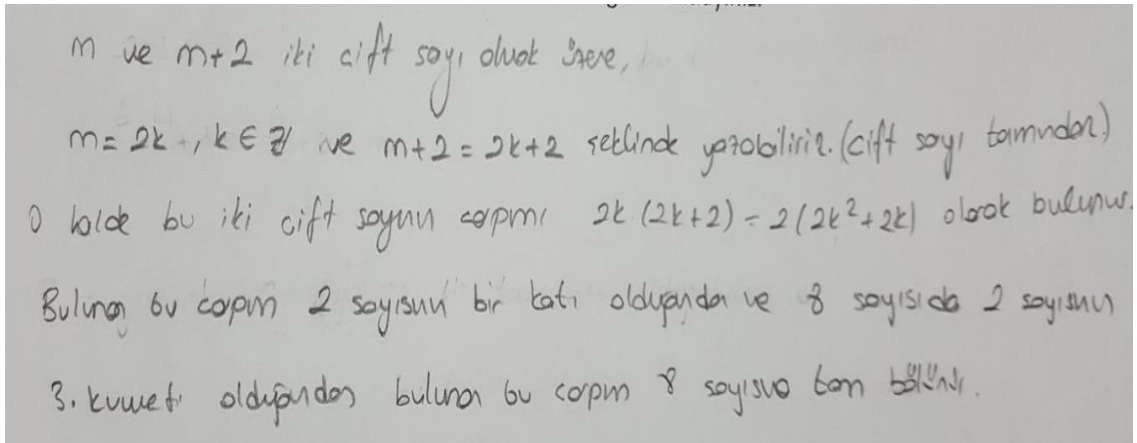 m ve m+2 iki çift sayı olmak üzere,
m=2k, k∈ℤ ve m+2=2k+2 şeklinde yazabiliriz. (çift sayı tanımından)
O halde bu iki çift sayının çarpımı 2k.(2k+2)=2(2k²+2k) olarak bulunur.
Bulunan bu çarpım 2 sayısının bir katı olduğundan ve 8 sayısıda 2 sayısının
3. kuvveti olduğundan bulunan bu çarpım 8 sayısına tam bölünür.